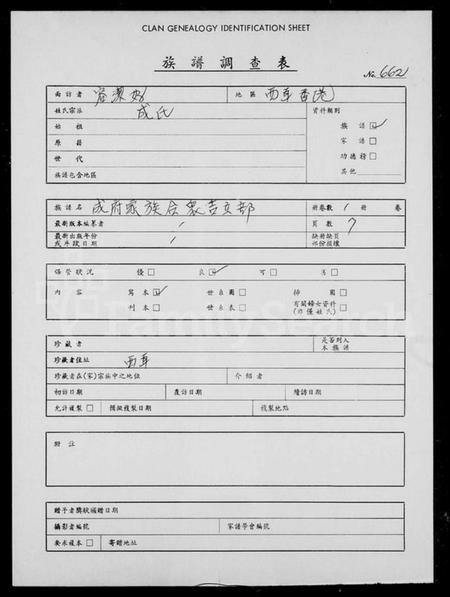 CLAN GENEALOGY IDENTIFICATION SHEET
族譜調查表
No. 662
面訪者 容潔好 地區 西草香港
姓氏宗法 成氏 資料類別
始祖 族譜☑
原籍 家譜□
世代 功德榜□
族譜包含地區 其他
族譜名 成府家族合眾吉立部 冊卷數 1 冊 卷
最新版本編纂者 頁數 7
最新出版年份 缺冊缺頁
或手跋日期 部份損壞
保管狀況 優□ 良☑ 可□ 劣□
內容 寫本☑ 世系圖□ 插圖□ 有關婦女資料□
刊本□ 世系表□ (不僅姓氏)
珍藏者 是否列入
本族譜
珍藏者住址 西草
珍藏者在(家)宗族中之地位 介紹者
初訪日期 覆訪日期 續訪日期
允許複製□ 預擬複製日期 複製地點
附註
贈予者獎狀頒贈日期
攝影者編號 家譜學會編號
要求複本□ 寄贈地址
FamilySearch